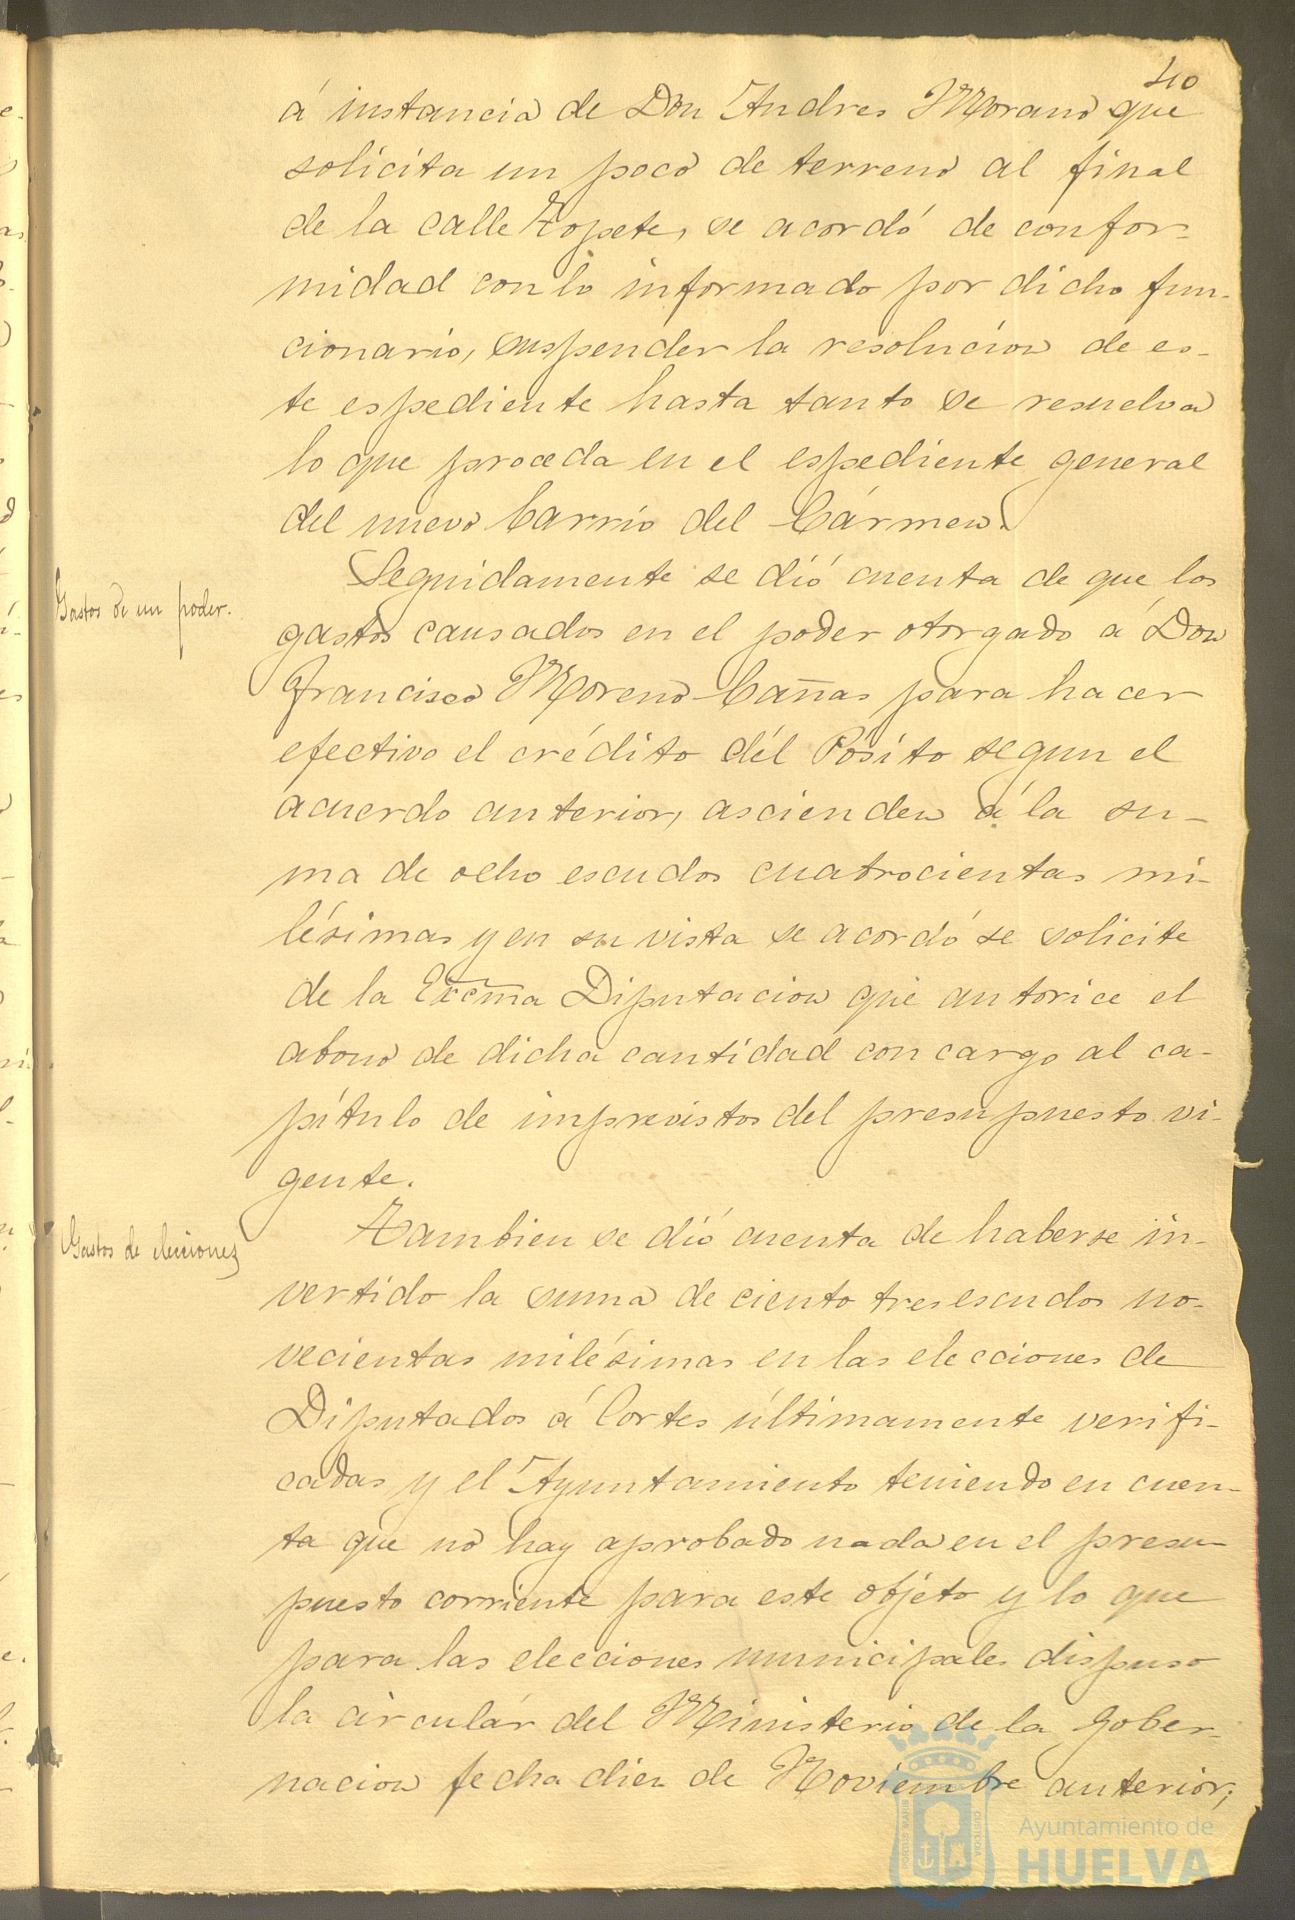 40
á instancia de Don Andres Morano que
solicita un poco de terreno al final
de la calle Topete, se acordó de confor-
midad con lo informado por dicho fun-
cionario, suspender la resolucion de es-
te espediente hasta tanto se resuelva
lo que proceda en el espediente general
del nuevo barrio del Cármen.
Gastos de un poder.
Seguidamente se dió cuenta de que los
gastos causados en el poder otorgado á Don
Francisco Moreno Cañas para hacer
efectivo el crédito dél Pósito segun el
acuerdo anterior, ascienden á la su-
ma de ocho escudos cuatrocientas mi-
lésimas y en su vista se acordó se solicite
de la Excma Diputacion que autorice el
abono de dicha cantidad con cargo al ca-
pítulo de imprevistos del presupuesto vi-
gente.
Gastos de elecciones
Tambien se dió cuenta de haberse in-
vertido la suma de ciento tres escudos no-
vecientas milésimas en las elecciones de
Diputados á Cortes últimamente verifi-
cadas y el Ayuntamiento teniendo en cuen-
ta que no hay aprobado nada en el presu-
puesto corriente para este objéto y lo que
para las elecciones municipales dispuso
la circulár del Ministerio de la Gober-
nacion fecha diez de Noviembre anterior;
PORTUS MARIS
CUSTODIA
Ayuntamiento de
HUELVA